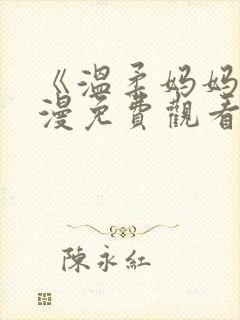 《溫柔妈妈
漫免費觀看
陳永紅